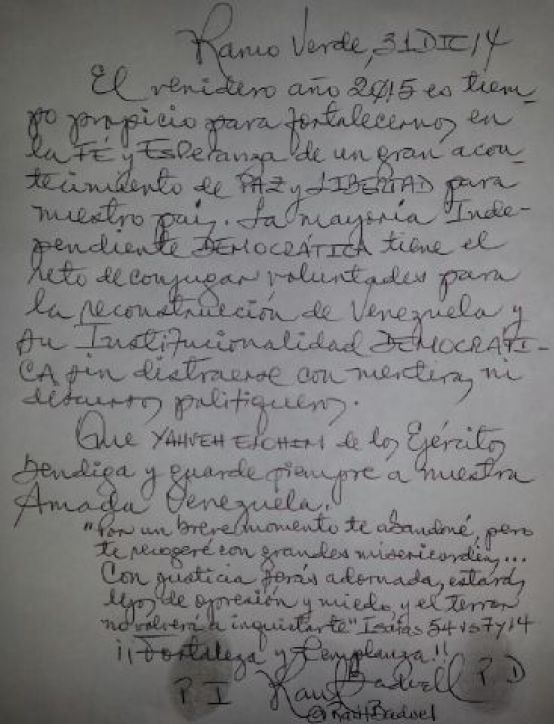 Ramo Verde, 31 DIC 14
El venidero año 2015 es tiem-
po propicio para fortalecernos en
la FÉ y Esperanza de un gran acon-
tecimiento de PAZ y LIBERTAD para
nuestro país. La mayoría Inde-
pendiente DEMOCRÁTICA tiene el
reto de conjugar voluntades para
la reconstrucción de Venezuela y
su Institucionalidad DEMOCRÁTI-
CA sin distraerse con mentiras ni
discursos politiqueros.
Que YAHVEH de los Ejércitos
bendiga y guarde siempre a nuestra
Amada Venezuela.
"Por un breve momento te abandoné, pero
te recogeré con grandes misericordias...
Con justicia serás adornada, estarás
lejos de opresión y miedo, y el terror
no volverá a inquietarte" Isaías 54 v 7 y 14
¡¡Fortaleza y Templanza!!
P I Raul Baduell P D
@RaulBaduel